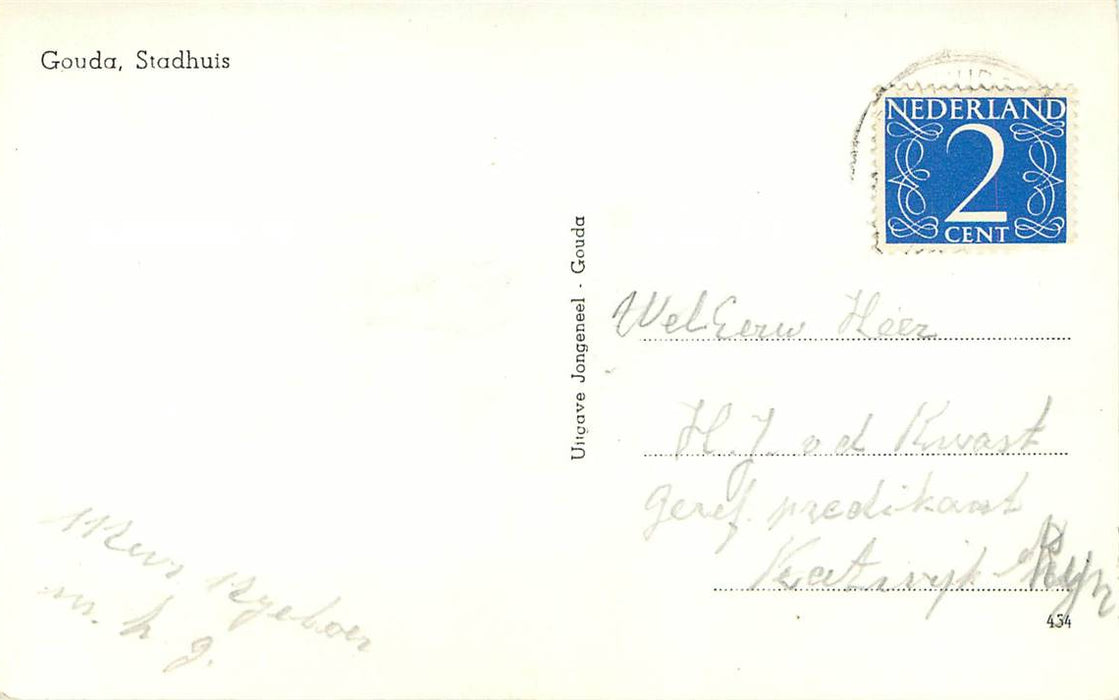 Gouda, Stadhuis
NEDERLAND
2
CENT
Uitgave Jongeneel - Gouda
WelEerw Heer
H. J. v d Kwast
Geref. predikant
Katwijk Rijn
434
m. h. g.